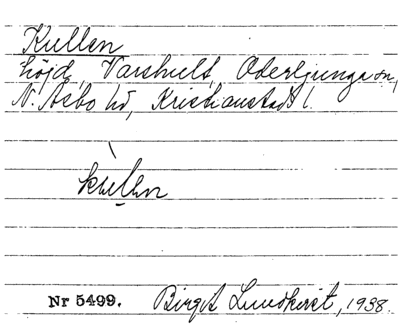 Kullen
höjd, Varshult, Oderljunga sn,
N. Åsbo hd, Kristianstads l.
kullen
Nr 5499. Birgit Lundkvist, 1938.